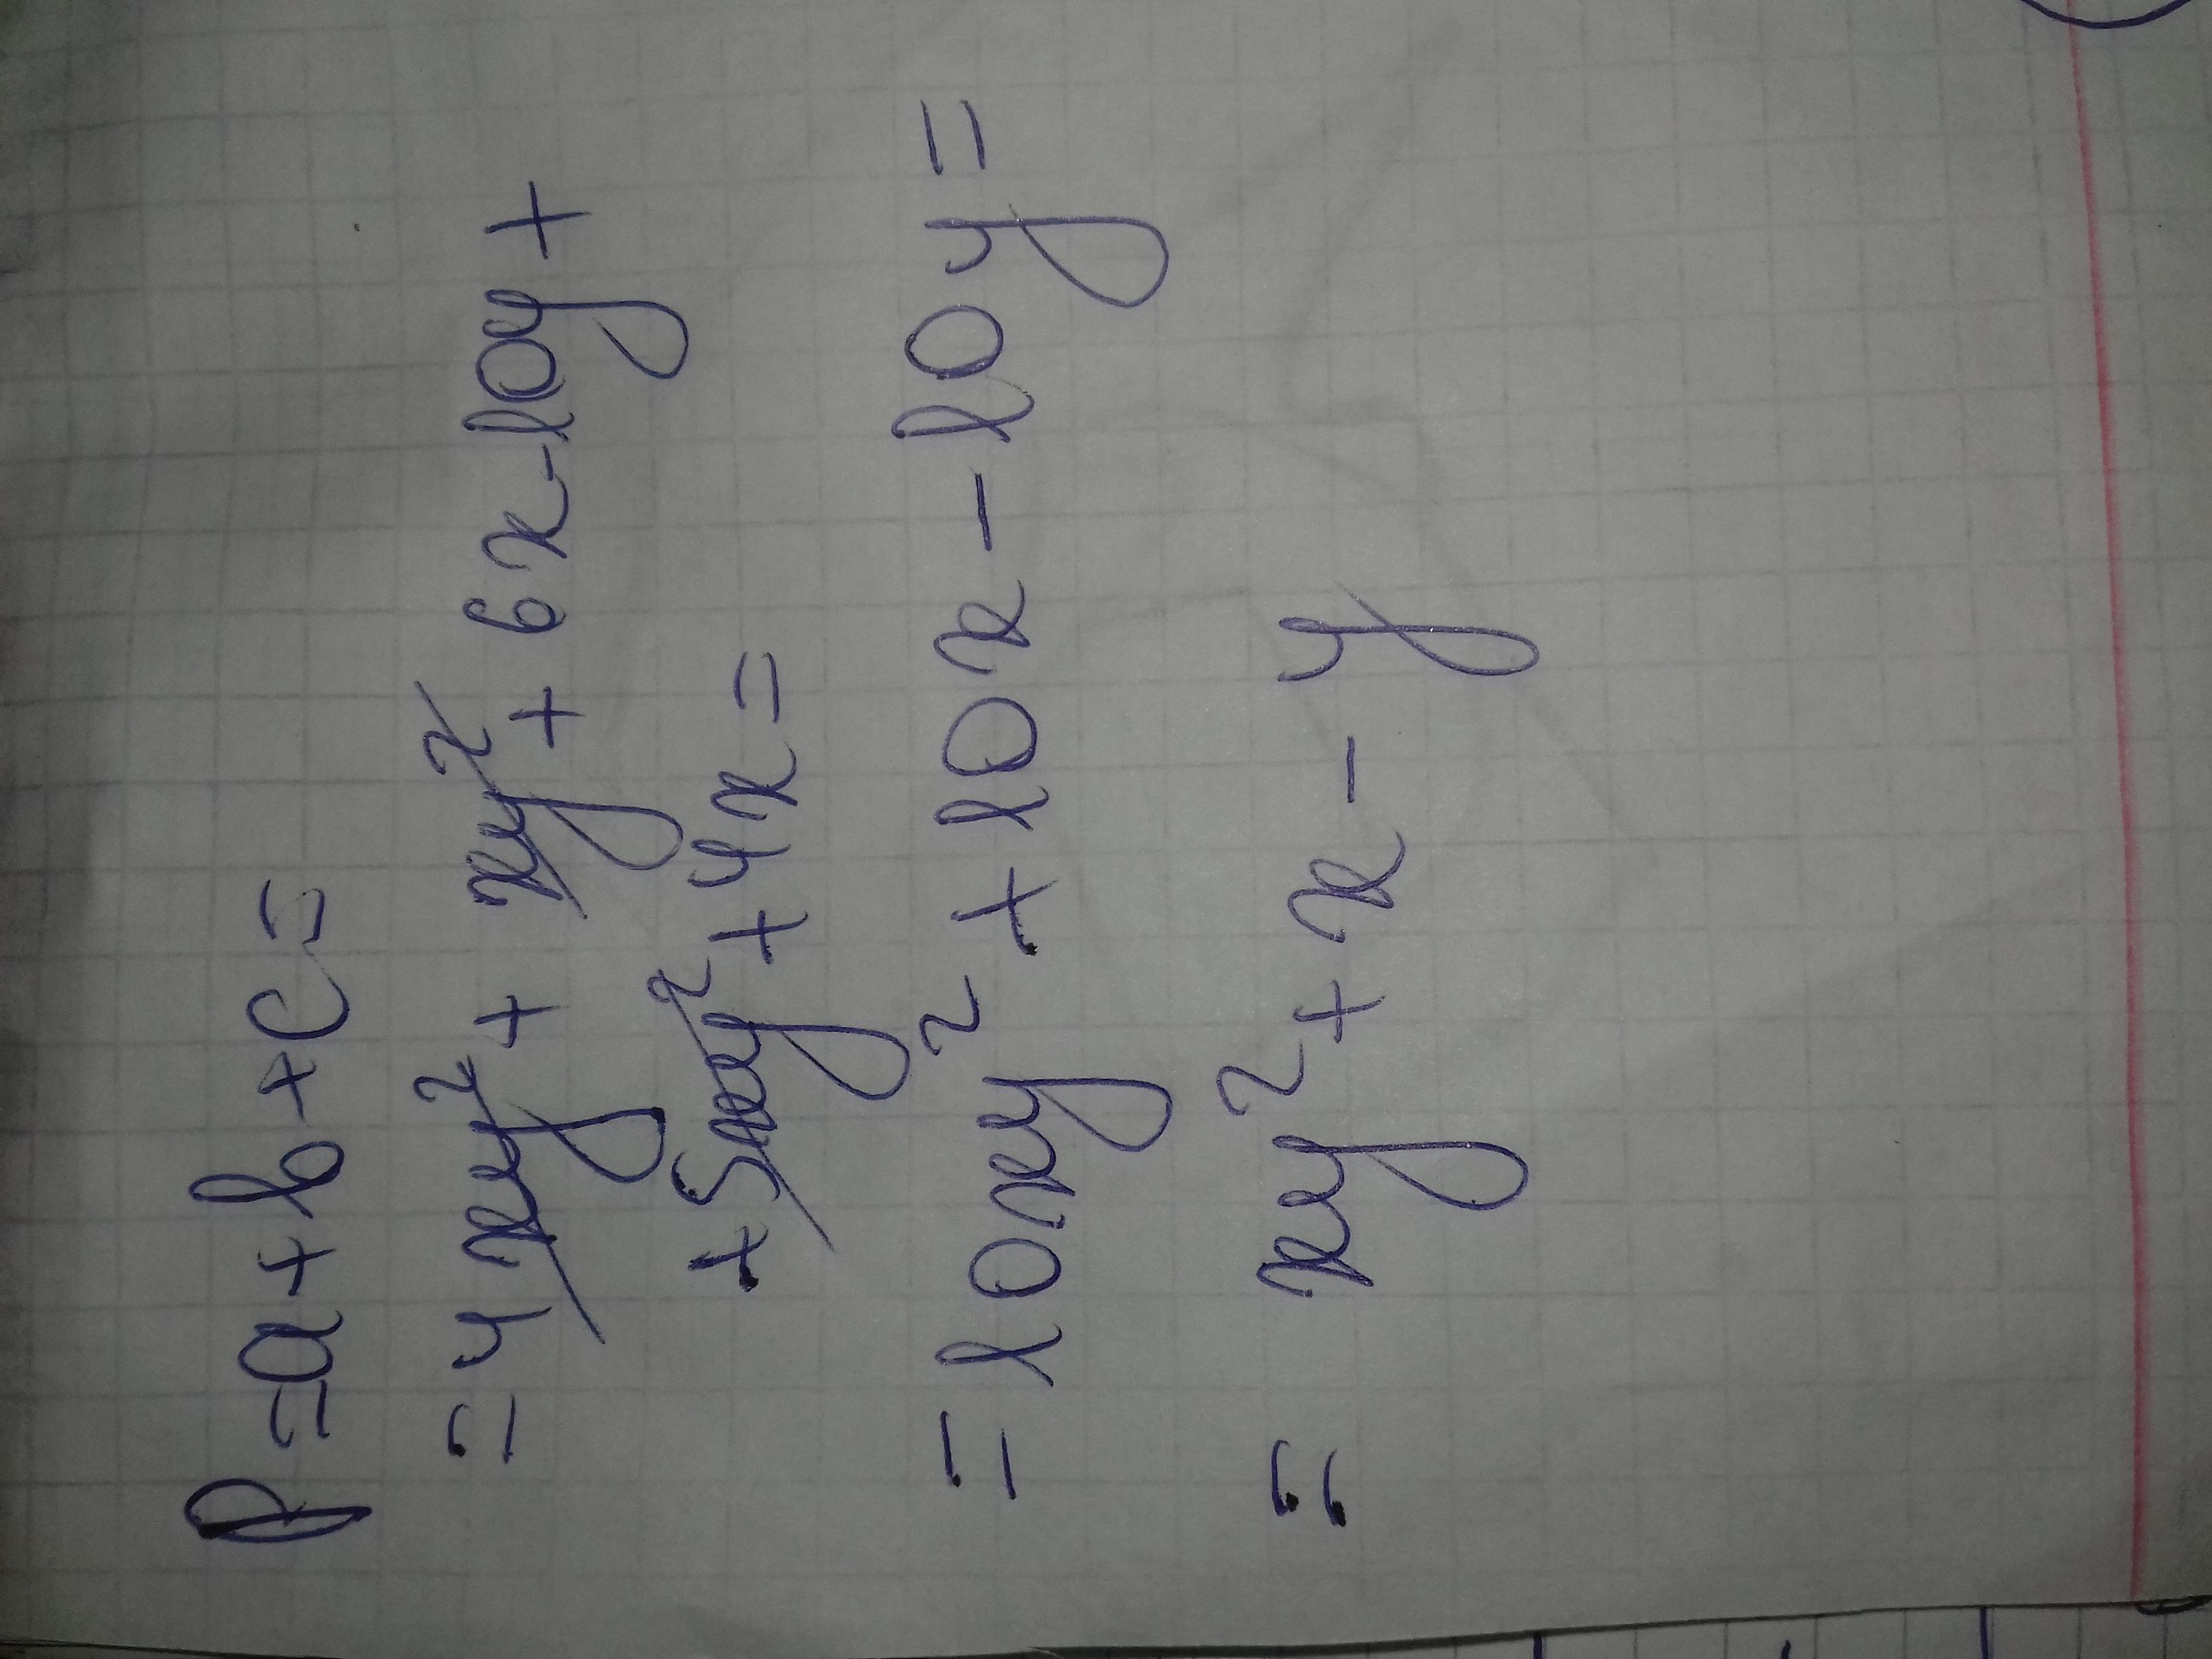 P=a+b+c=
=4xy²+xy²+6x-10y+
+5xy²+4x=
=10xy²+10x-10y=
=xy²+x-y